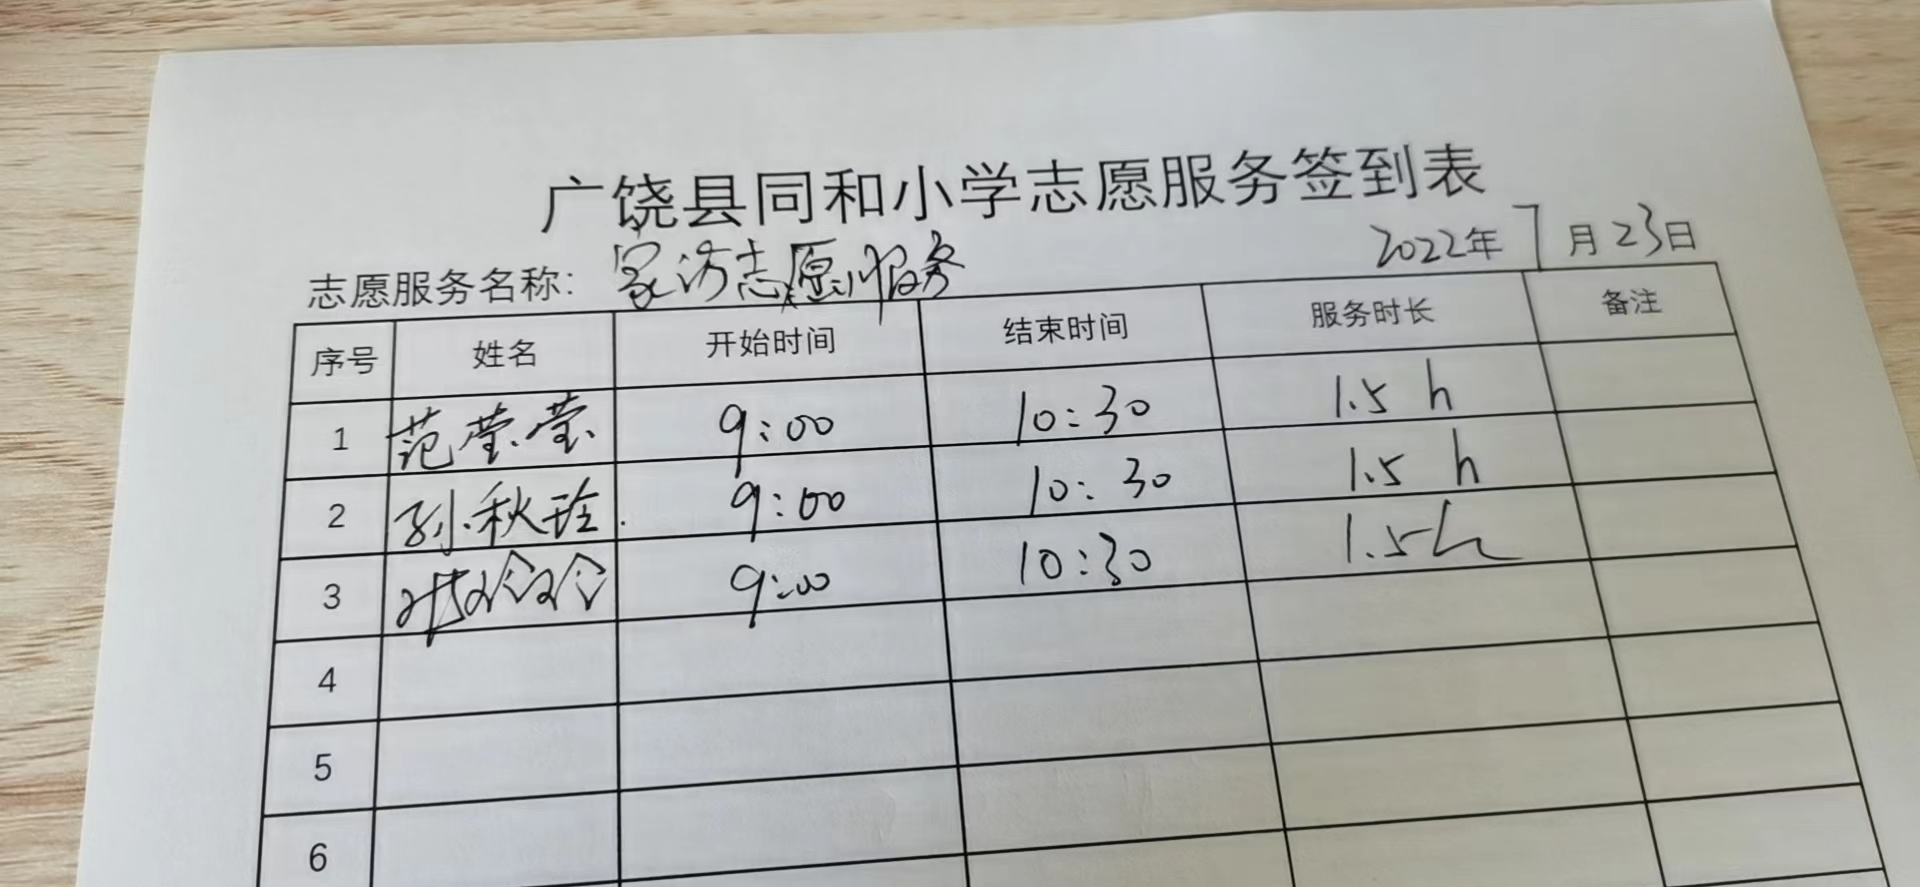 广饶县同和小学志愿服务签到表
志愿服务名称: 家访志愿服务 2022年7月23日
序号 姓名 开始时间 结束时间 服务时长 备注
1 范莹莹 9:00 10:30 1.5 h
2 孙秋玲 9:00 10:30 1.5 h
3 9:00 10:30 1.5h
4
5
6